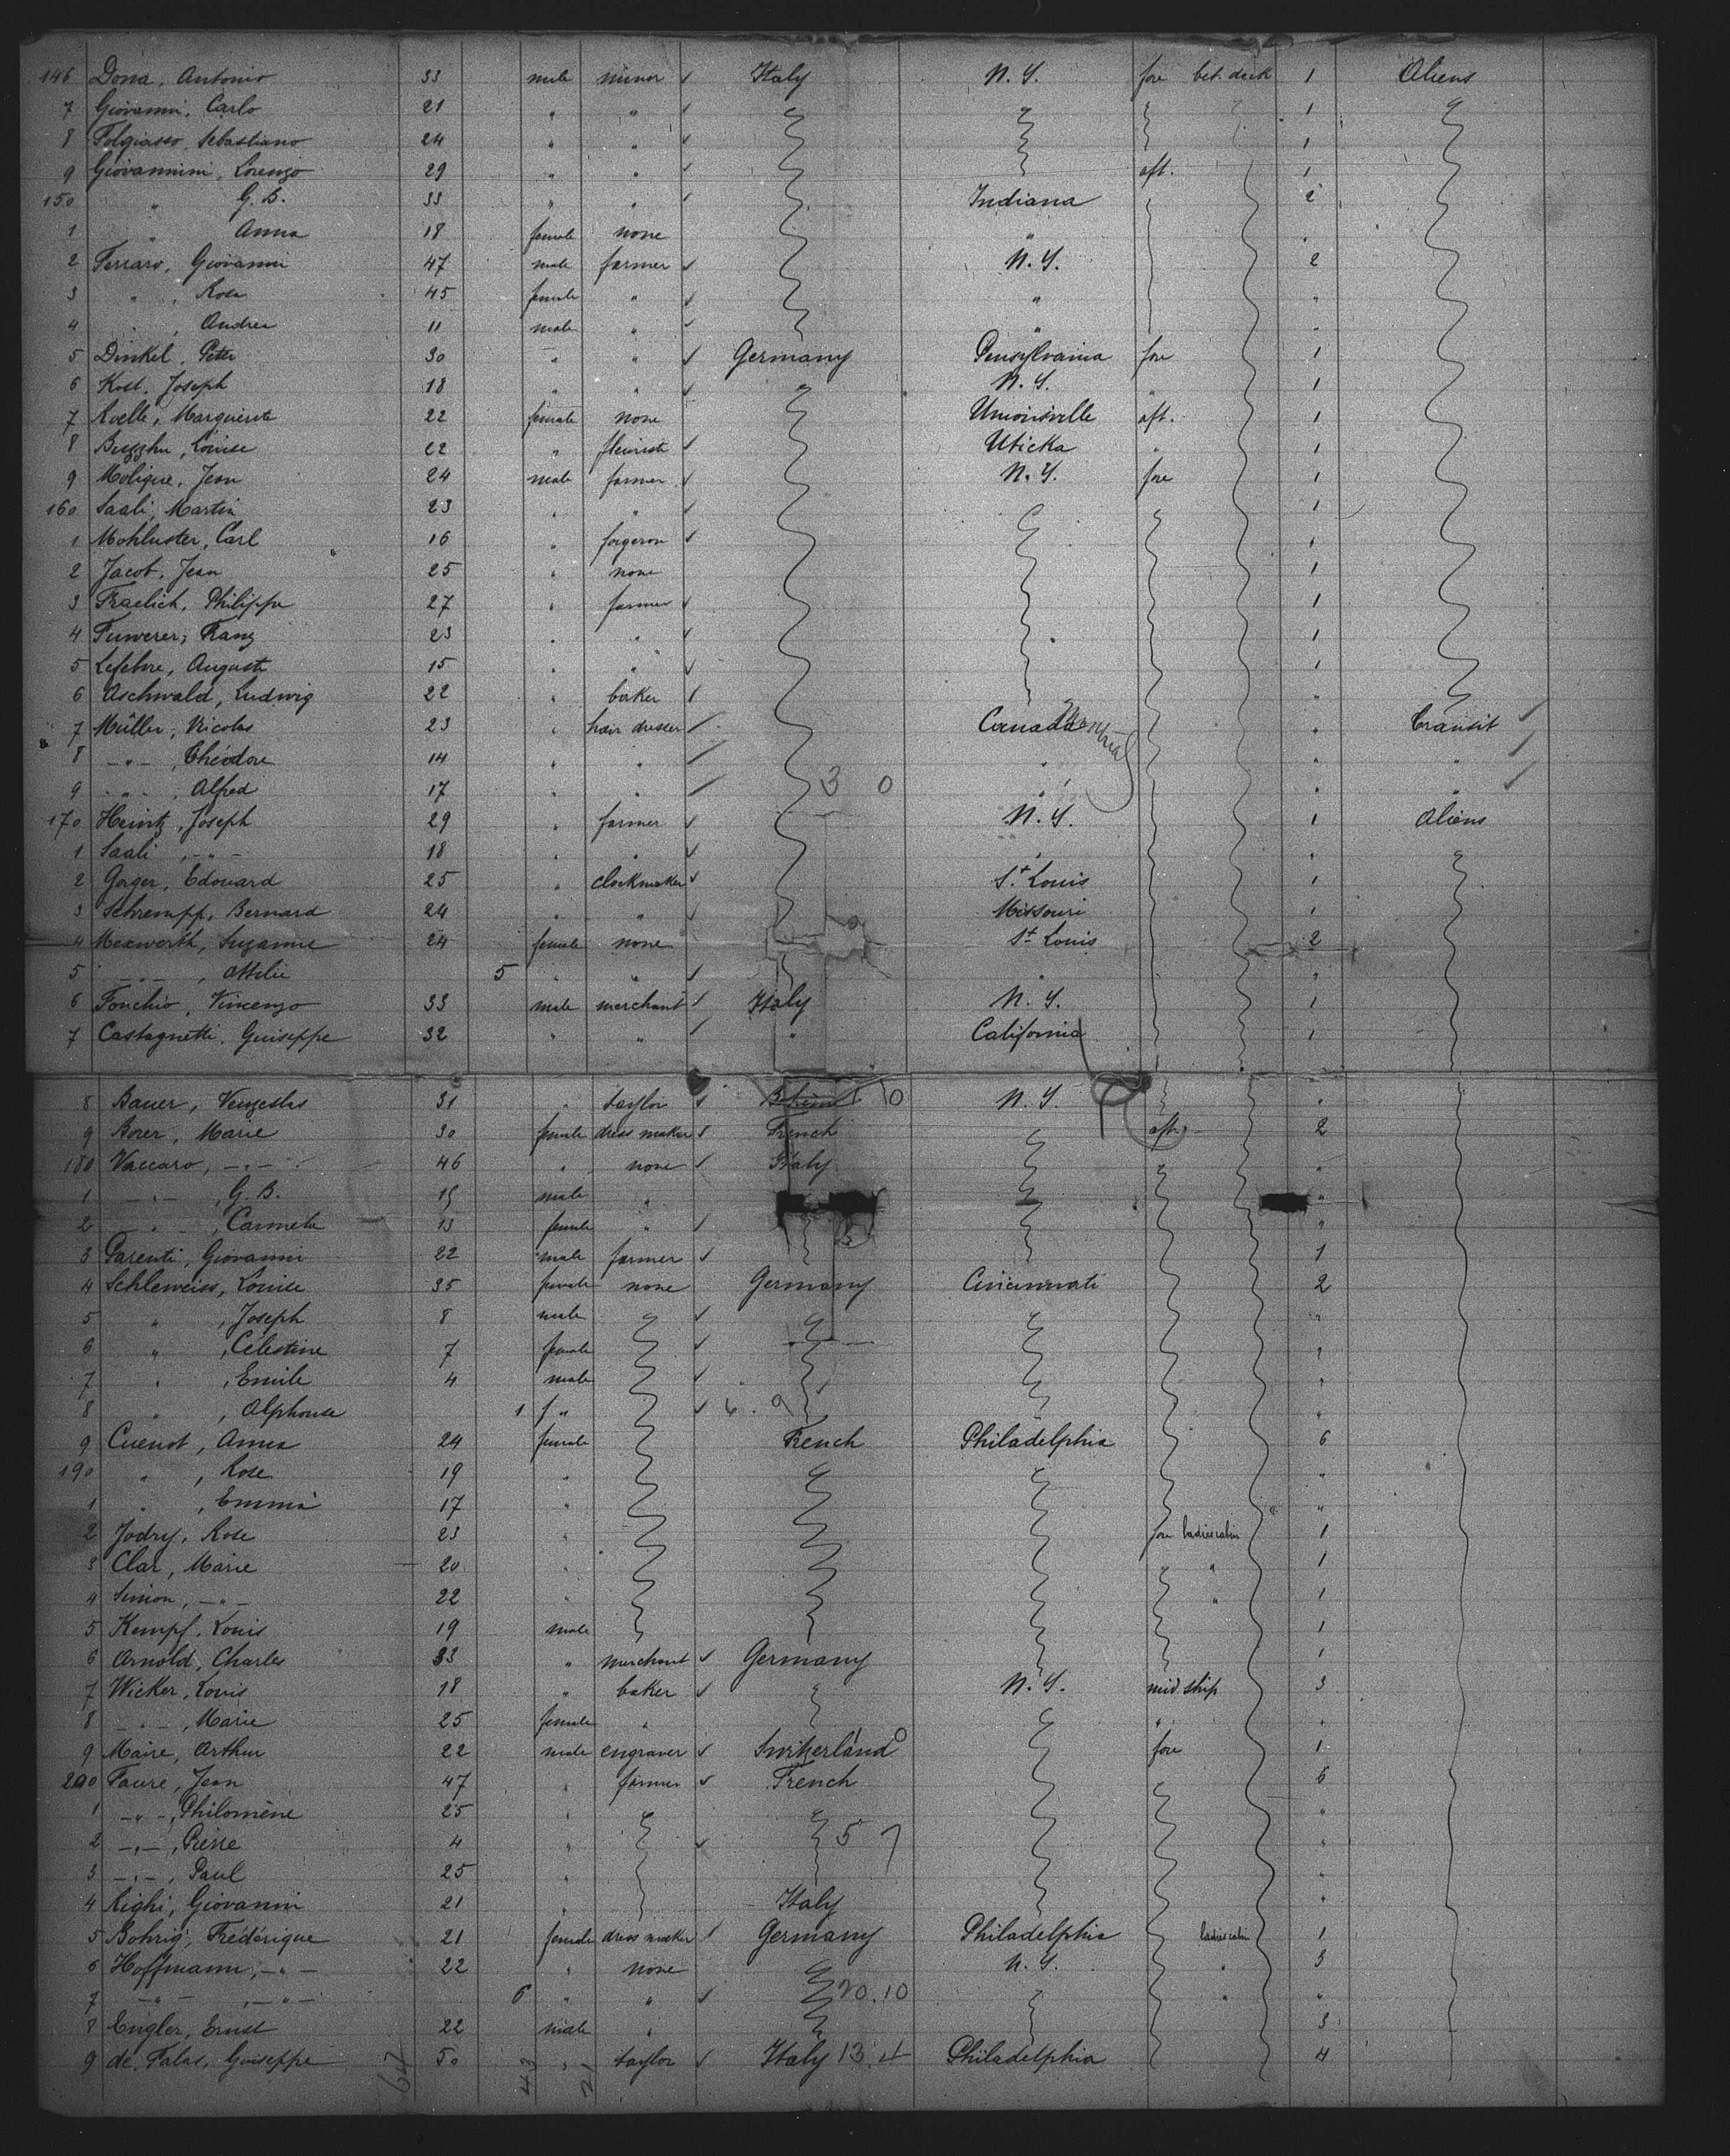 146 Dona, Antonio 33 male minor Italy N.Y. fore bet. deck 1 Aliens
7 Giovanni, Carlo 21 " " 1
8 Sebastiano 24 " " 1
9 Giovannini, Lorenzo 29 " " aft. 1
150 " G. B. 33 " " Indiana 2
1 " Anna 18 female none " "
2 Ferraro, Giovanni 47 male farmer N.Y. 2
3 " , Rosa 45 female " " "
4 " , Andrea 11 male " " "
5 Dinkel, Peter 30 " " Germany Pensylvania fore 1
6 Kost, Joseph 18 " " " N.Y. " 1
7 Roelle, Marguerite 22 female none Unionsville aft. 1
8 Louise 22 " fleuriste Uticka " 1
9 Molique, Jean 24 male farmer N.Y. fore 1
160 Saali, Martin 23 " " 1
1 Mohluster, Carl 16 " forgeron 1
2 Jacob, Jean 25 " none 1
3 Fraelich, Philippe 27 " farmer 1
4 Franz 23 " " 1
5 Lefebre, Auguste 15 " " 1
6 Aschwald, Ludwig 22 " baker "
7 Müller, Nicolas 23 " hair dresser Canada Montreal " transit
8 - " - , Théodore 14 " " " " "
9 - " - , Alfred 17 " " 3 0 " " "
170 Heintz, Joseph 29 " farmer N.Y. 1 Aliens
1 Saali , - " - 18 " " " "
2 Gorger, Edouard 25 " clockmaker St. Louis 1
3 Schrempf, Bernard 24 " " Missouri 1
4 Mexwerth, Suzanne 24 female none St. Louis 2
5 - " - , Ottilie 5 " " " "
6 Fonchio, Vincenzo 33 male merchant Italy N.Y. 1
7 Castagnetti, Guiseppe 32 " " " California 1
8 Bauer, Venzeslas 31 " taylor 0 N.Y. "
9 Borer, Marie 30 female dress maker French aft. 2
180 Vaccaro, - " - 46 " none Italy "
1 - " - , G. B. 15 male " "
2 - " - , Carmela 13 female " "
3 Parenti, Giovanni 22 male farmer 1
4 Schleweiss, Louise 35 female none Germany Cincinnati 2
5 " , Joseph 8 male "
6 " , Célestine 7 female "
7 " , Emile 4 male "
8 " , Alphonse 1 f " 6. 9 "
9 Cuenot, Anna 24 female French Philadelphia 6
190 " , Rose 19 " "
1 " , Emma 17 " "
2 Jodry, Rose 23 " fore ladies cabin 1
3 Clar, Marie 20 " " " 1
4 Simon, - " - 22 " " 1
5 Kempf, Louis 19 male 1
6 Arnold, Charles 33 " merchant Germany 1
7 Wicker, Louis 18 " baker " N.Y. mid. ship 3
8 - " - , Marie 25 female " " "
9 Maire, Arthur 22 male engraver Switzerland 0 fore 1
200 Faure, Jean 47 " farmer French 6
1 - " - , Philomène 25 " "
2 - " - , Pierre 4 " 5 7 "
3 - " - , Paul 25 " "
4 Righi, Giovanni 21 " Italy "
5 Bohrig, Frédérique 21 female dress maker Germany Philadelphia ladies cabin 1
6 Hoffmann, - " - 22 " none N.Y. " 3
7 - " - , - " - 6 " " 20.10 " "
8 Engler, Ernst 22 male " 3
9 de Falas, Guiseppe 50 " taylor Italy 13.4 Philadelphia 4